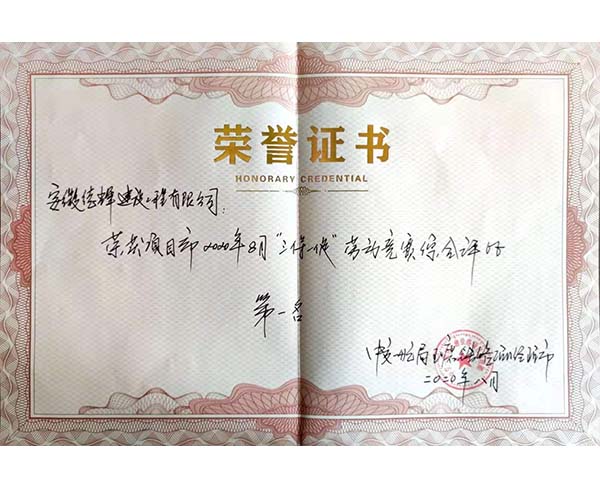 荣誉证书
HONORARY CREDENTIAL
安徽德辉建设工程有限公司:
荣获项目部2020年8月“三保一优”劳动竞赛综合评比
第一名
2020年八月